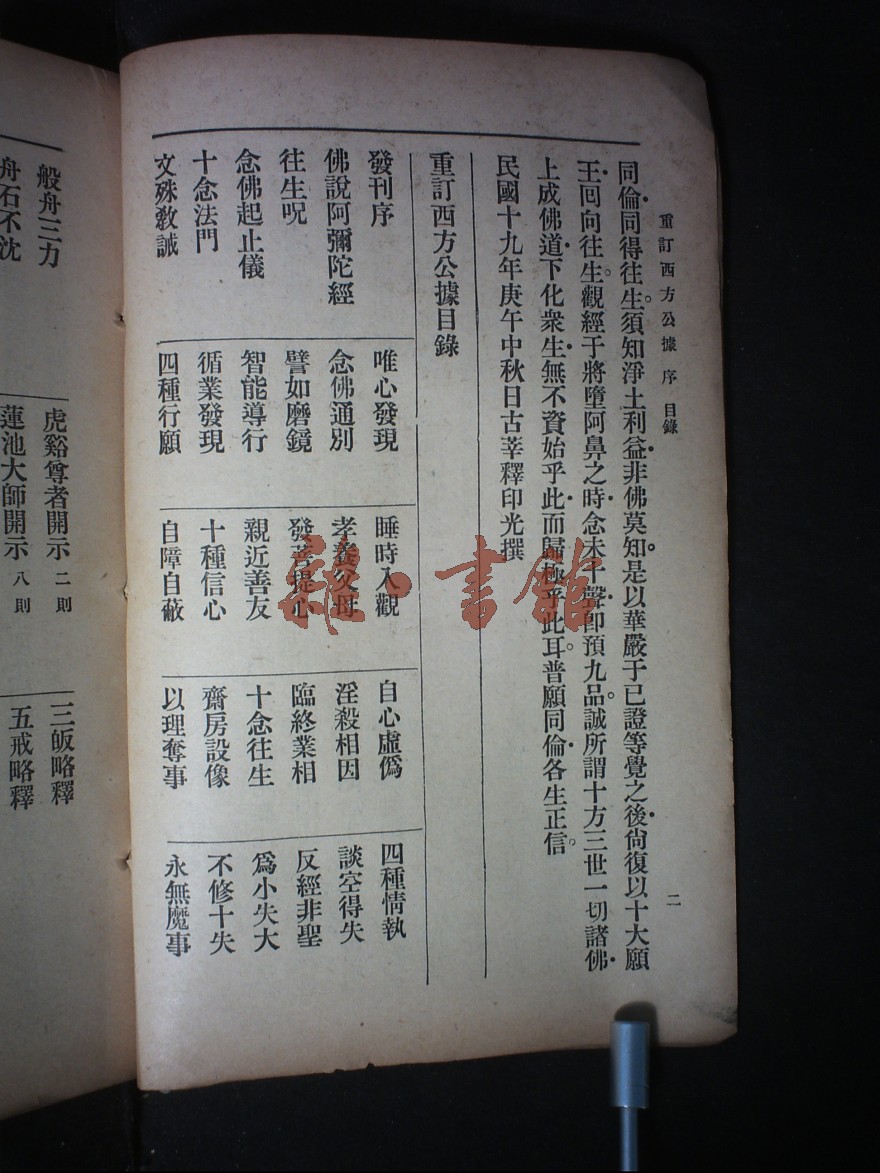 重訂西方公據序 目錄 二
同倫同得往生。須知淨土利益。非佛莫知。是以華嚴于已證等覺之後。尙復以十大願
王。回向往生。觀經于將墮阿鼻之時。念未十聲。卽預九品。誠所謂十方三世一切諸佛。
上成佛道。下化衆生。無不資始乎此。而歸極乎此耳。普願同倫。各生正信。
民國十九年庚午中秋日古莘釋印光撰
重訂西方公據目錄
發刊序
佛說阿彌陀經
往生呪
念佛起止儀
十念法門
文殊敎誡
唯心發現
念佛通別
譬如磨鏡
智能導行
循業發現
四種行願
睡時入觀
孝養父母
發菩提心
親近善友
十種信心
自障自蔽
自心虛僞
淫殺相因
臨終業相
十念往生
齋房設像
以理奪事
四種情執
談空得失
反經非聖
爲小失大
不修十失
永無魔事
般舟三力
舟石不沈
虎谿尊者開示 二則
蓮池大師開示 八則
三皈略釋
五戒略釋
雜·書館